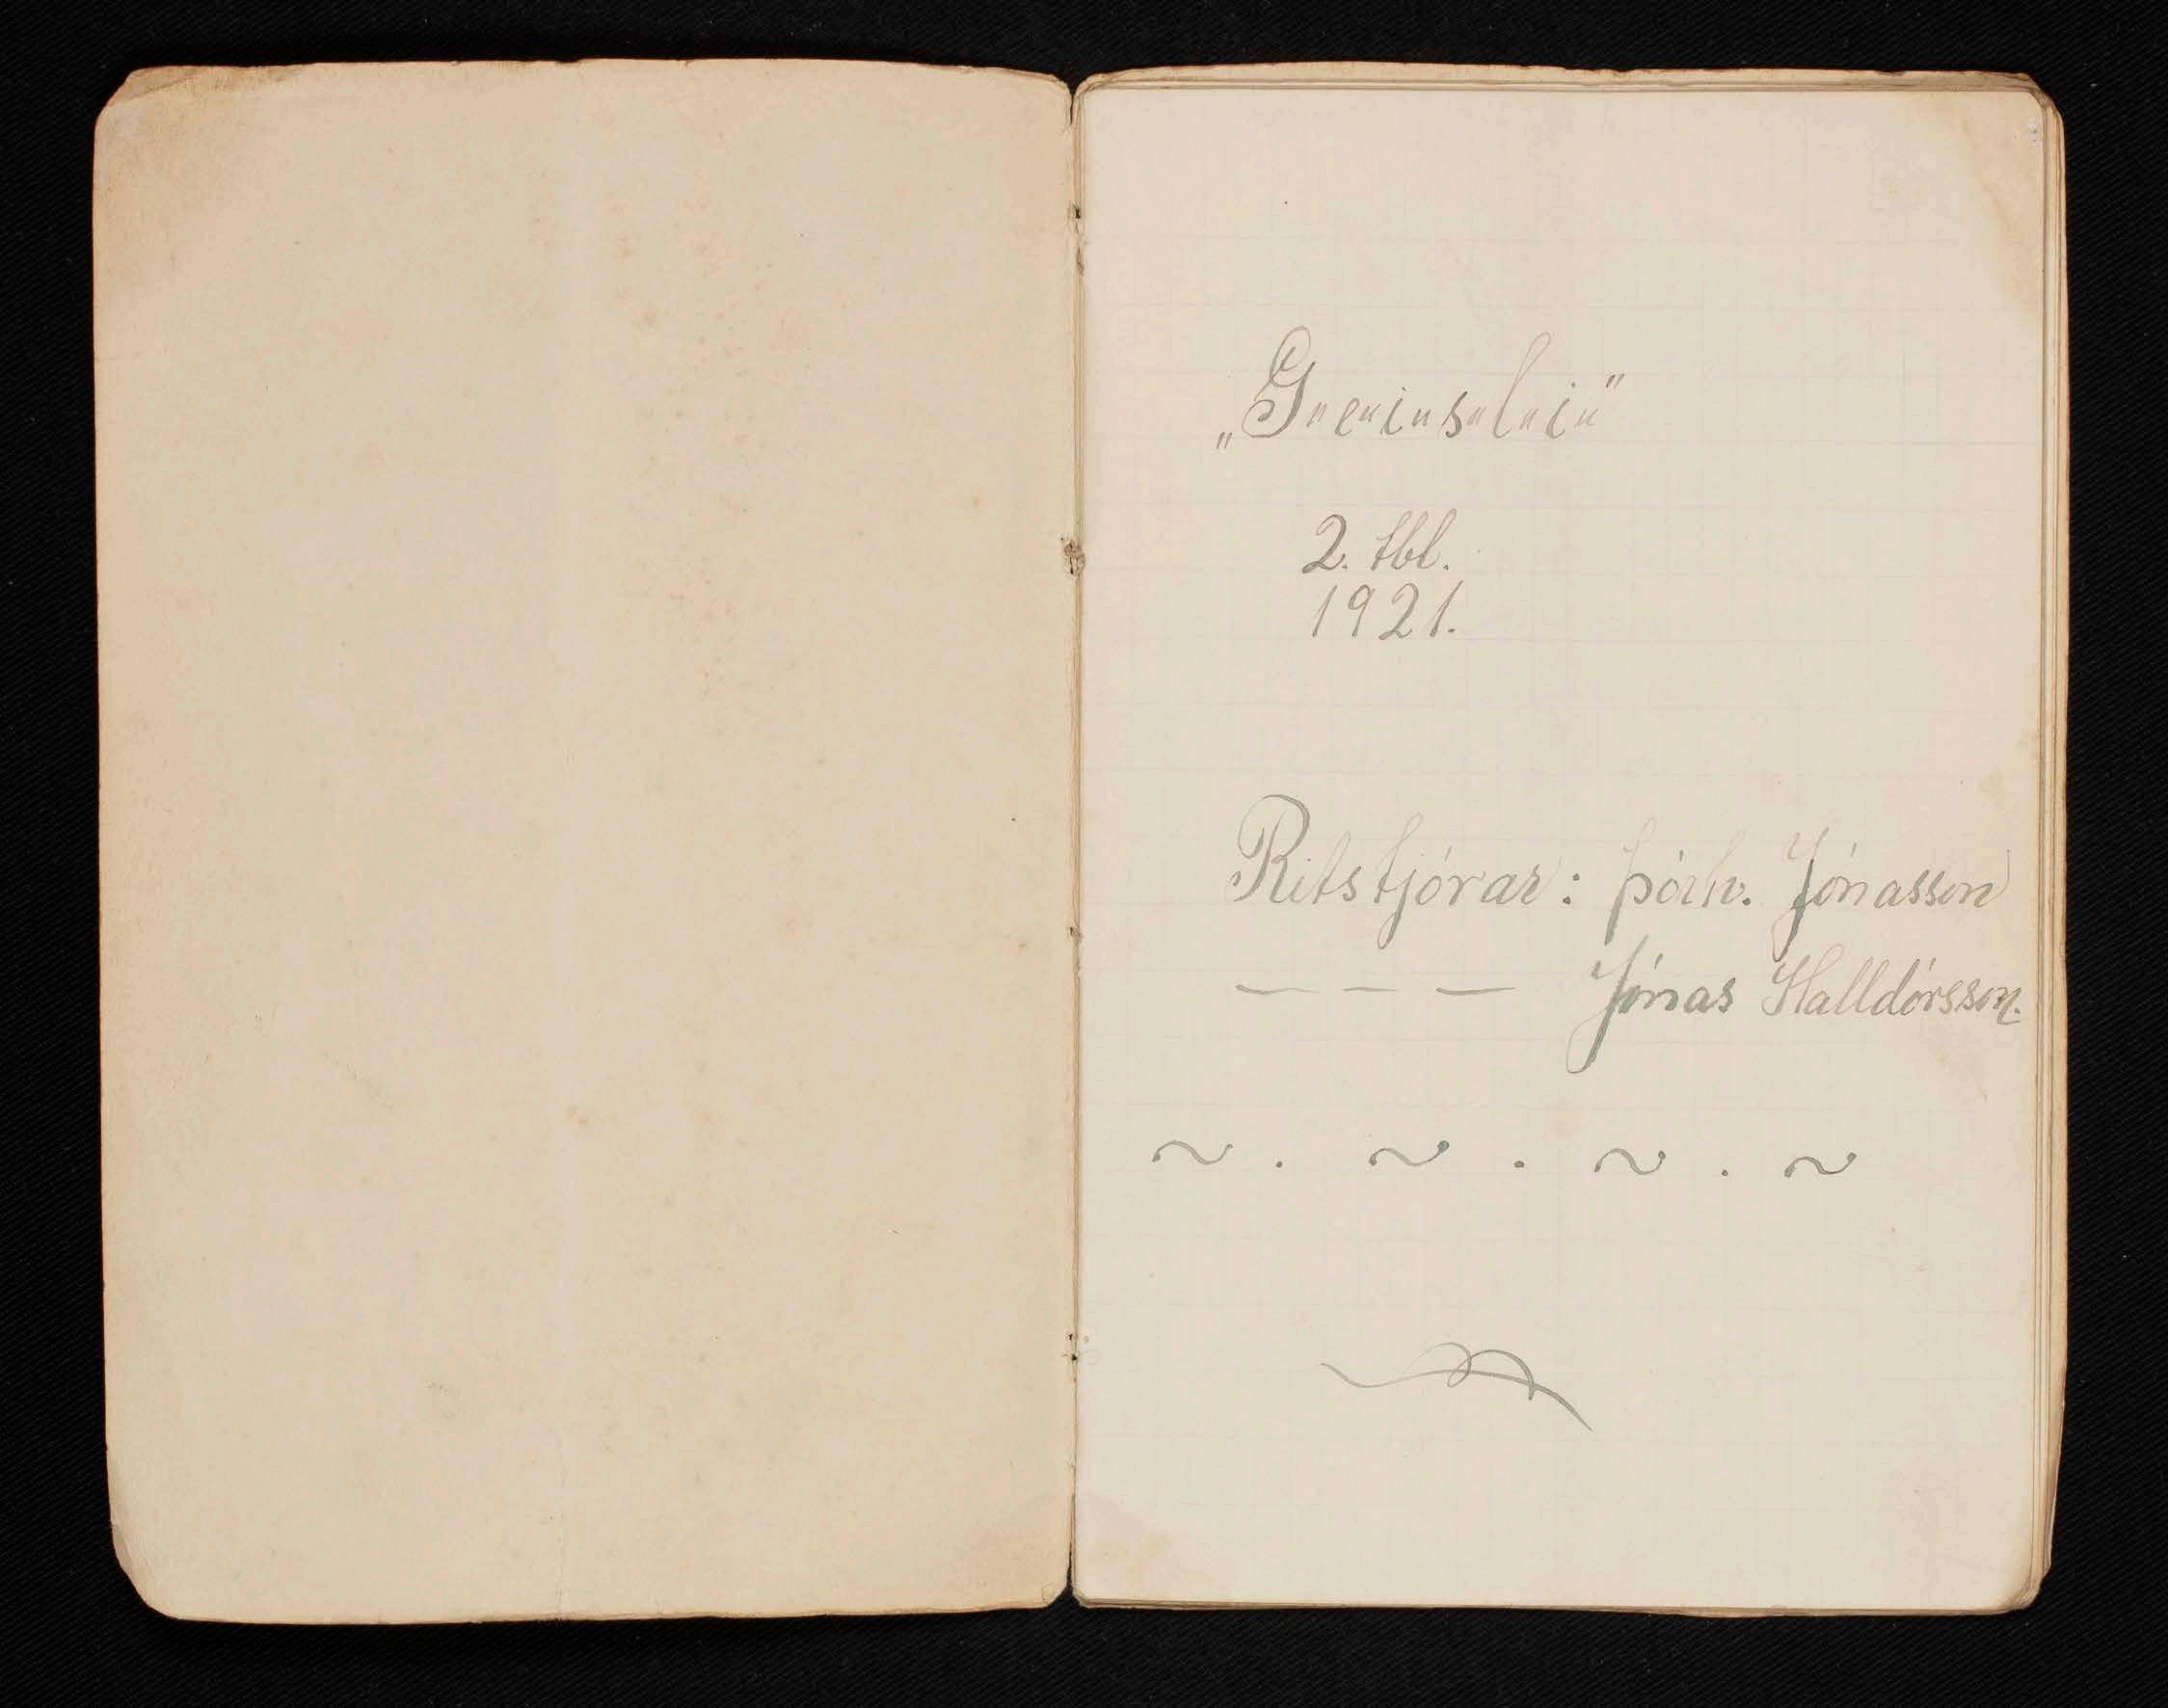 „G"e"i"s"l"i"
2. tbl.
1921.
Ritstjórar: Þórh. Jónasson
— — — Jónas Halldórsson.